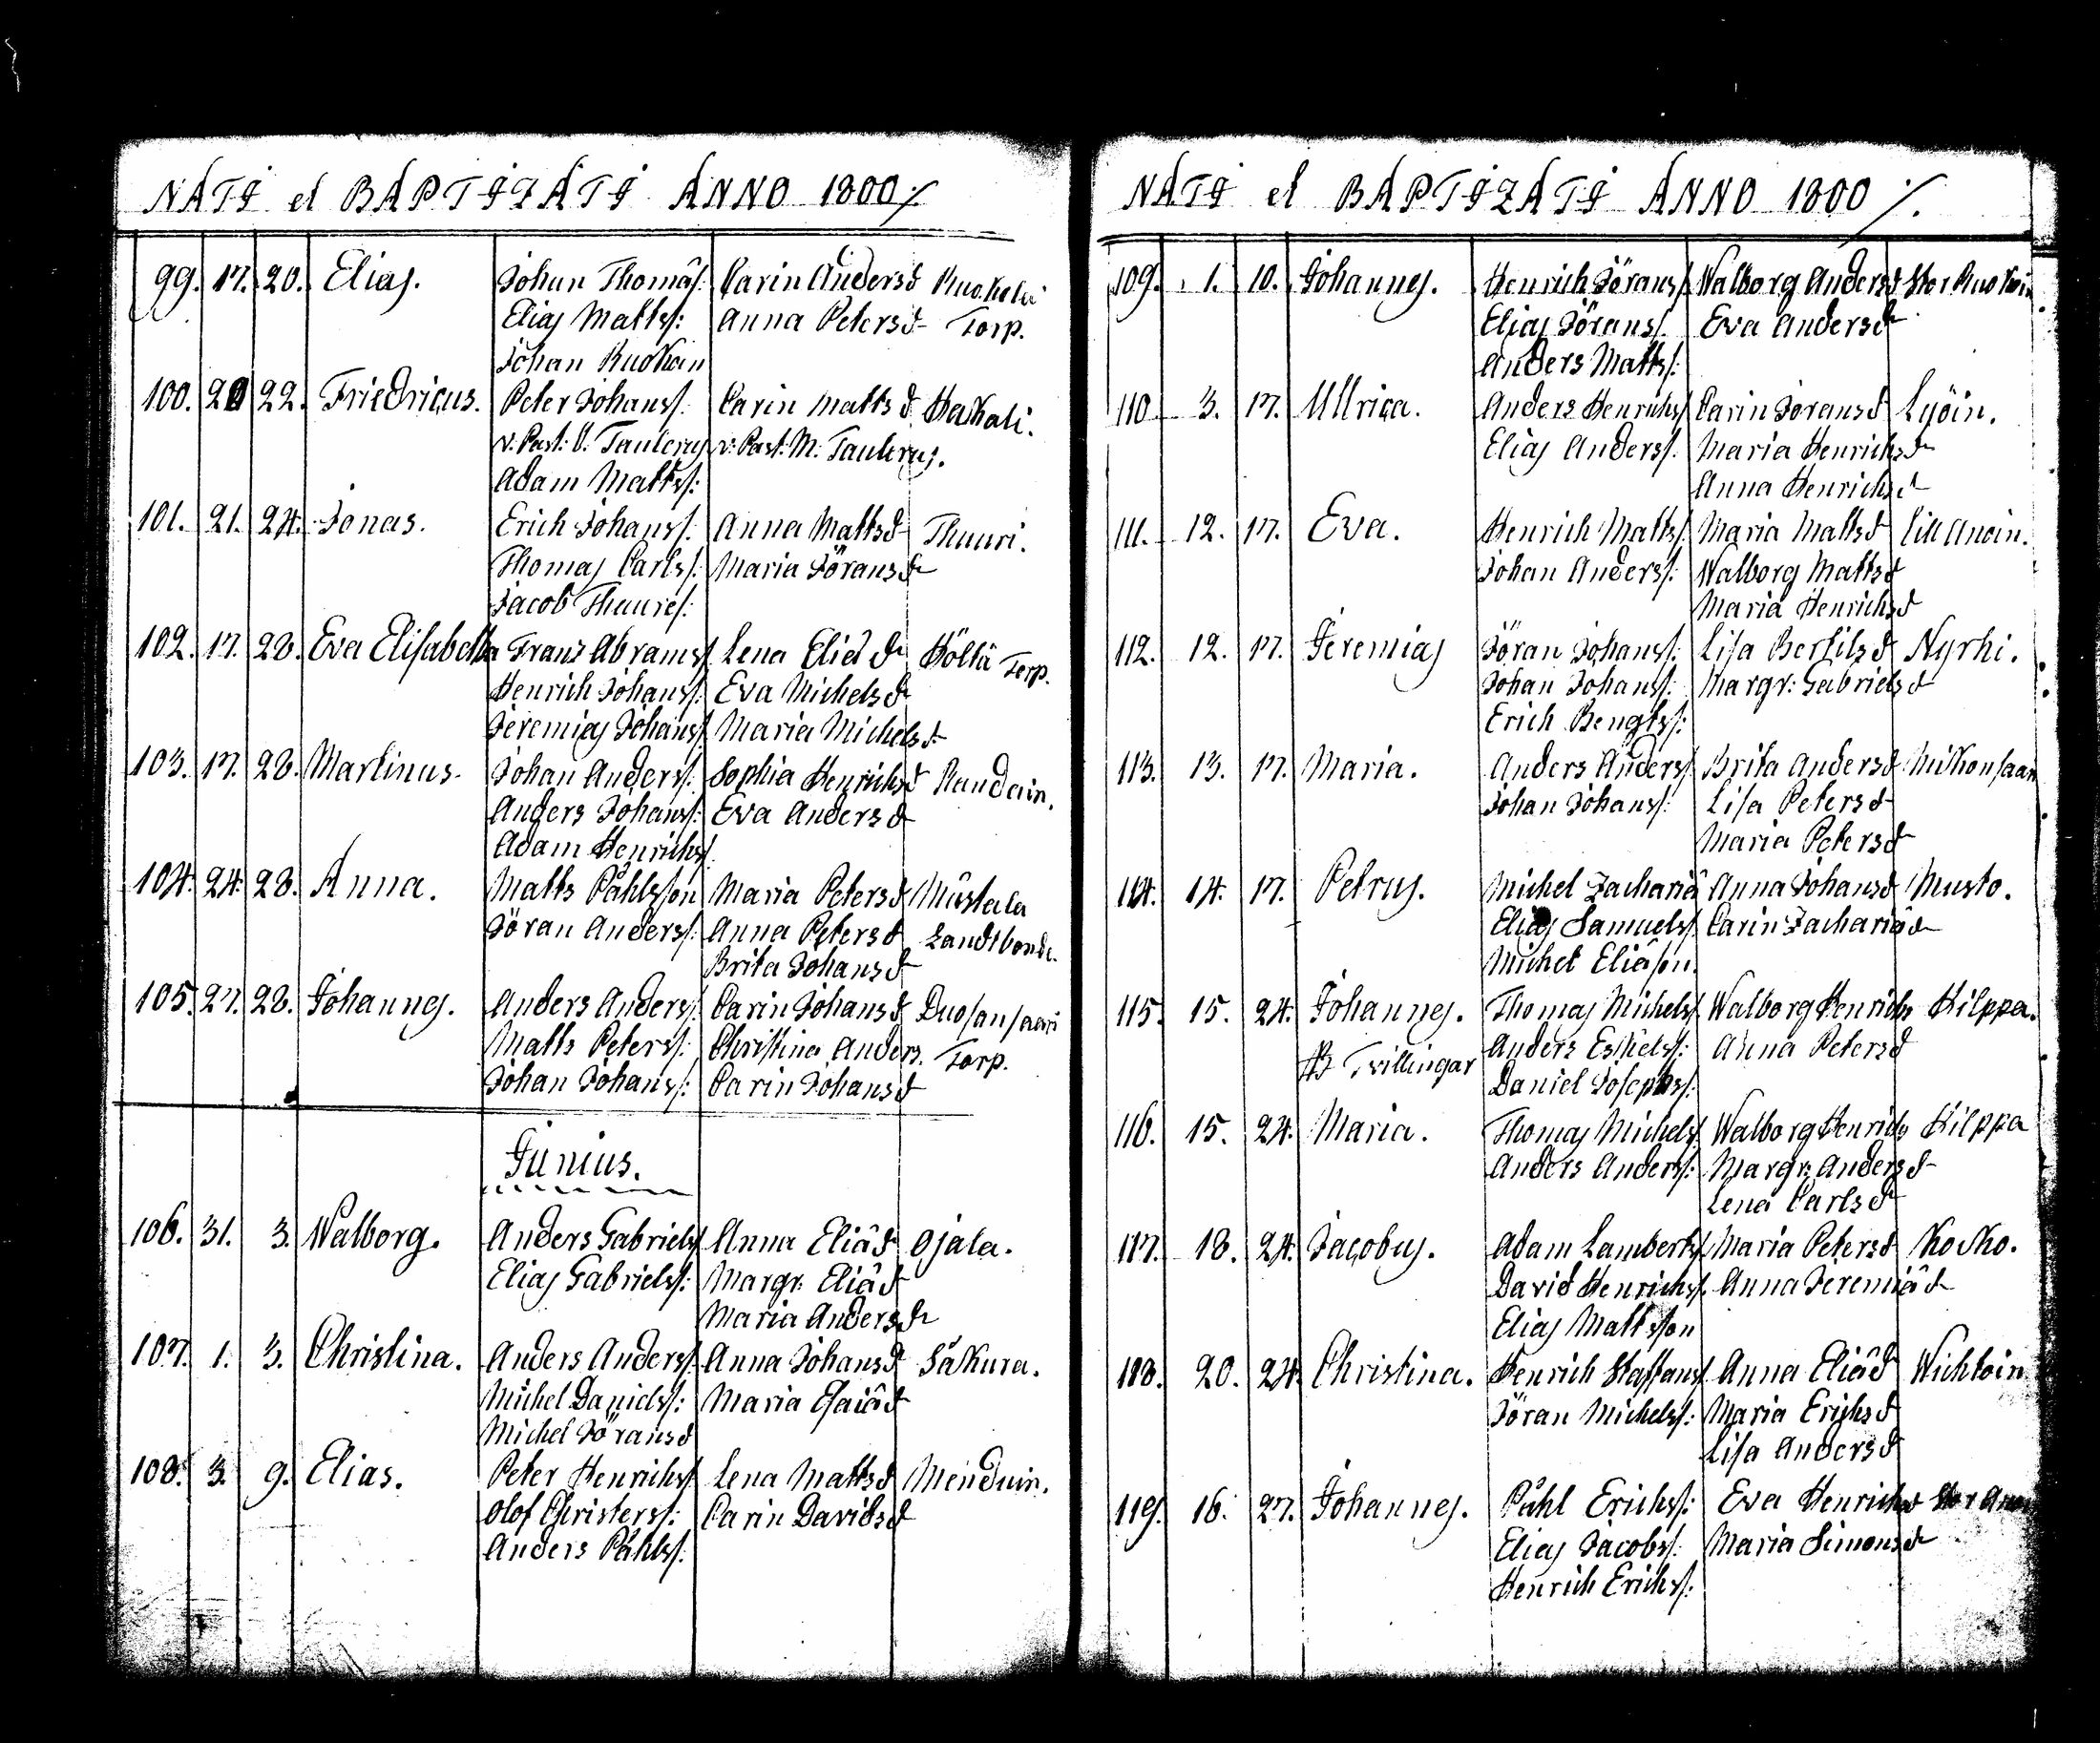 NATI et BAPTIZATI ANNO 1800 ./.
99. 17. 20. Elias. Johan Thomas/: Carin Andersd Ruokola
Elias Matts/: Anna Petersdr Torp.
Johan Ruokoin
100. 20 22. Friedricus. Peter Johans/: Carin Mattsd Hakali.
v: Past: V. Taulerus v: Past: M. Taulerus.
Adam Matts/:
101. 21. 24. Jonas. Erich Johans/: Anna Mattsdr Thuuri.
Thomas Carls/: Maria Jöransdr
Jacob Thures/:
102. 17. 28. Eva Elisabetha Franz Abrams/: Lena Eliädr Höltä Torp.
Henrich Johans/: Eva Michelsdr
Jeremias Johans/: Maria Michelsdr
103. 17. 28. Martinus. Johan Anders/: Sophia Henrichsd Randain.
Anders Johans/: Eva Andersdr
Adam Henrichs/:
104. 24. 28. Anna. Matts Påhlsson Maria Petersd Mustala
Jöran Anders/: Anna Petersd Landtbonde.
Brita Johansdr
105. 27. 28. Johannes. Anders Anders/: Carin Johansd
Matts Peters/: Christina Anders. Torp.
Johan Johans/: Carin Johansd
Junius.
106. 31. 3. Walborg. Anders Gabriels/: Anna Eliâd Ojala.
Elias Gabriels/: Margr: Eliâd
Maria Andersdr
107. 1. 3. Christina. Anders Anders/: Anna Johansd Säkura.
Michel Daniels/: Maria Esaiâd
Michel Jöransd
108. 3. 9. Elias. Peter Henrichs/: Lena Mattsd Menduin.
Olof Christers/: Carin Davidsd
Anders Påhls/:
NATI et BAPTIZATI ANNO 1800 ./.
109. 1. 10. Johannes. Henrich Jörans/: Walborg Andersd Stor Ruokoin
Elias Jörans/: Eva Andersdr
Anders Matts/:
110 3. 17. Ullrica. Anders Henrichs/: Carin Joransd Lyöin.
Elias Anders/: Maria Henrichsdr
Anna Henrichsd
111. 12. 17. Eva. Henrich Matts/: Maria Mattsd Lill Anoin.
Johan Anders/: Walborg Mattsd
Maria Henrichsd
112. 12. 17. Jeremias Jöran Johans/: Lisa Bertilsd Nyrhi.
Johan Johans/: Margr: Gabrielsd
Erich Bengts/:
113. 13. 17. Maria. Anders Anders/: Brita Andersd Mikonsaari
Johan Johans/: Lisa Petersdr
Maria Petersd
114. 14. 17. Petrus. Michel Zachariâ Anna Johansd Musto.
Elias Samuels/: Carin Zachariâdr
Michel Eliâson.
115. 15. 24. Johannes. Thomas Michels/: Walborg Henrichs Kilppa.
Tvillingar Anders Eskels/: Anna Petersd
Daniel Josephs/:
116. 15. 24. Maria. Thomas Michels/: Walborg Henrichs Kilppa
Anders Anders/: Margr: Andersdr
Lena Carlsdr
117. 18. 24. Jacobus. Adam Lamberts/: Maria Petersd Kosko.
David Henrichs/: Anna Jeremiâd
Elias Mattsson
118. 20. 24. Christina. Henrich Staffans/: Anna Eliâd Wichtoin
Jöran Michels/: Maria Erichsd
Lisa Andersd
119. 16. 27. Johannes. Påhl Erichs/: Eva Henrichsd Stor
Elias Jacobs/: Maria Simonsd
Henrich Erichs/: